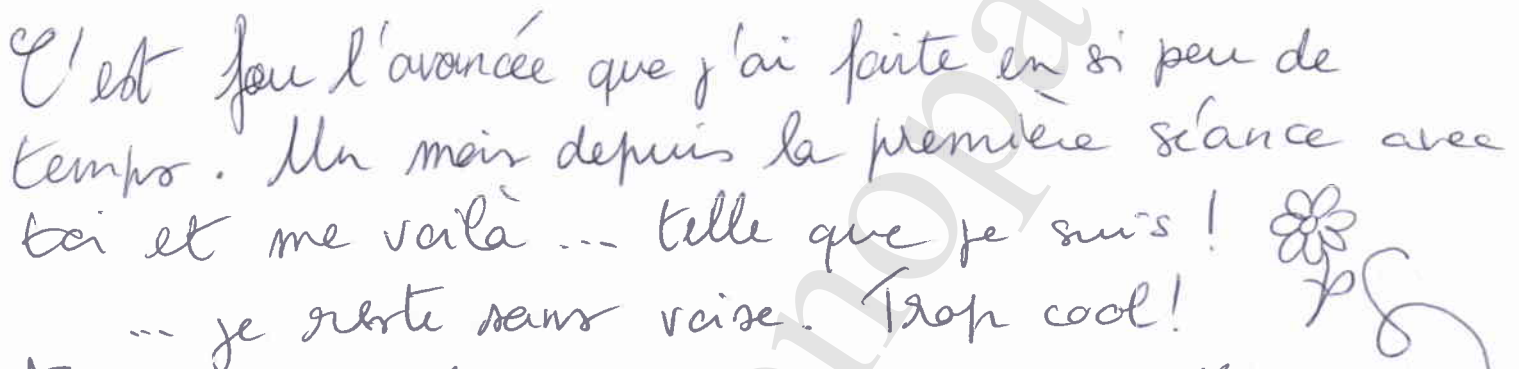 C'est fou l'avancée que j'ai faite en si peu de
temps. Un mois depuis la première séance avec
toi et me voilà ... telle que je suis !
... je reste sans voixe. Trop cool !